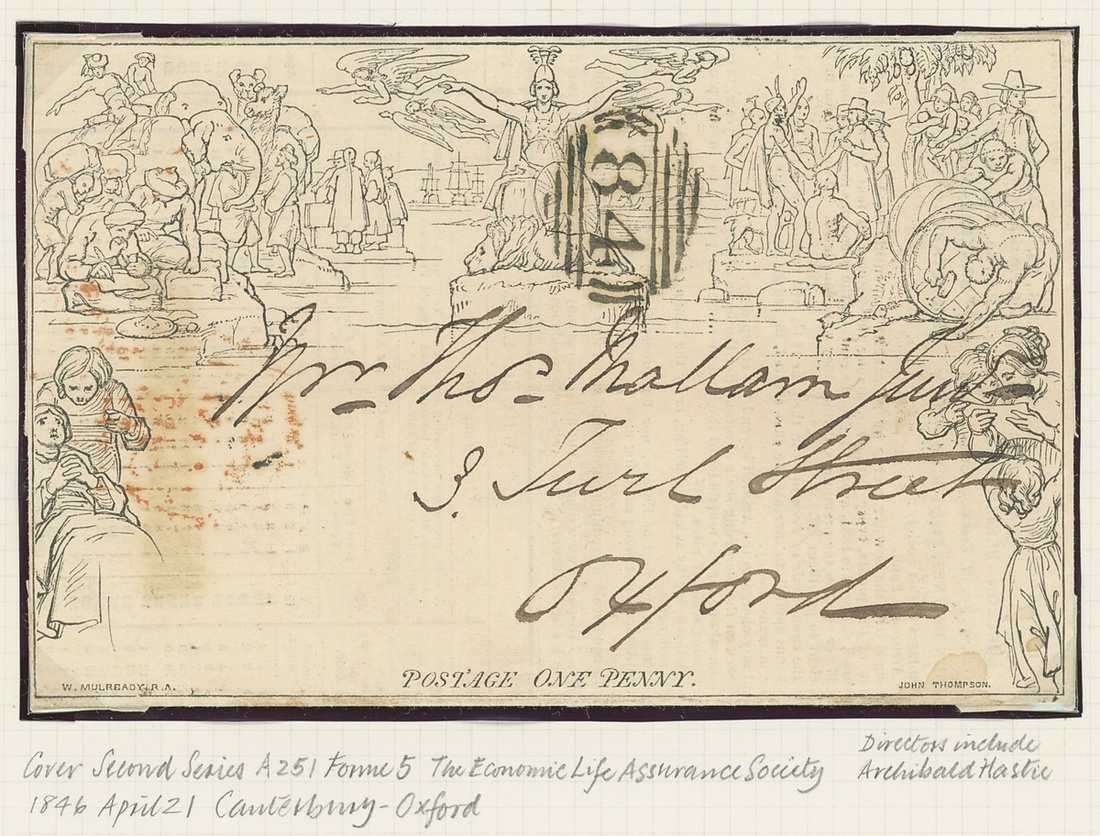 184
Mr. Thos. Mallam Junr
3. Turl Street
Oxford
W. MULREADY, R.A.
POSTAGE ONE PENNY.
JOHN THOMPSON.
Cover Second Series A251 Forme 5 The Economic Life Assurance Society
1846 April 21 Canterbury - Oxford
Directors include
Archibald Hastie